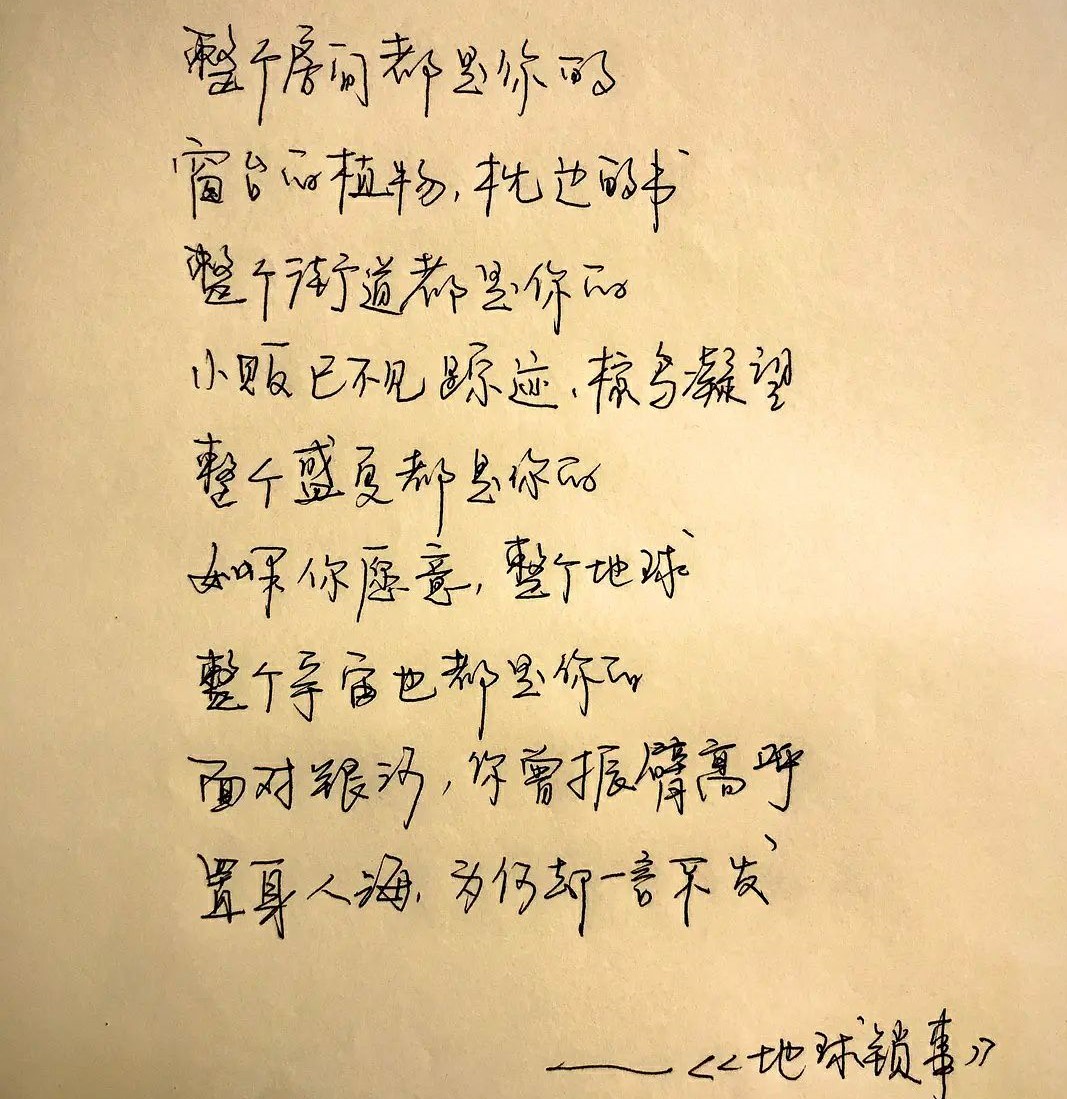 整个房间都是你的
窗台的植物，枕边的书
整个街道都是你的
小贩已不见踪迹，棕鸟凝望
整个盛夏都是你的
如果你愿意，整个地球
整个宇宙也都是你的
面对艰汐，你曾振臂高呼
置身人海，为何却一言不发
——《地球锁事》